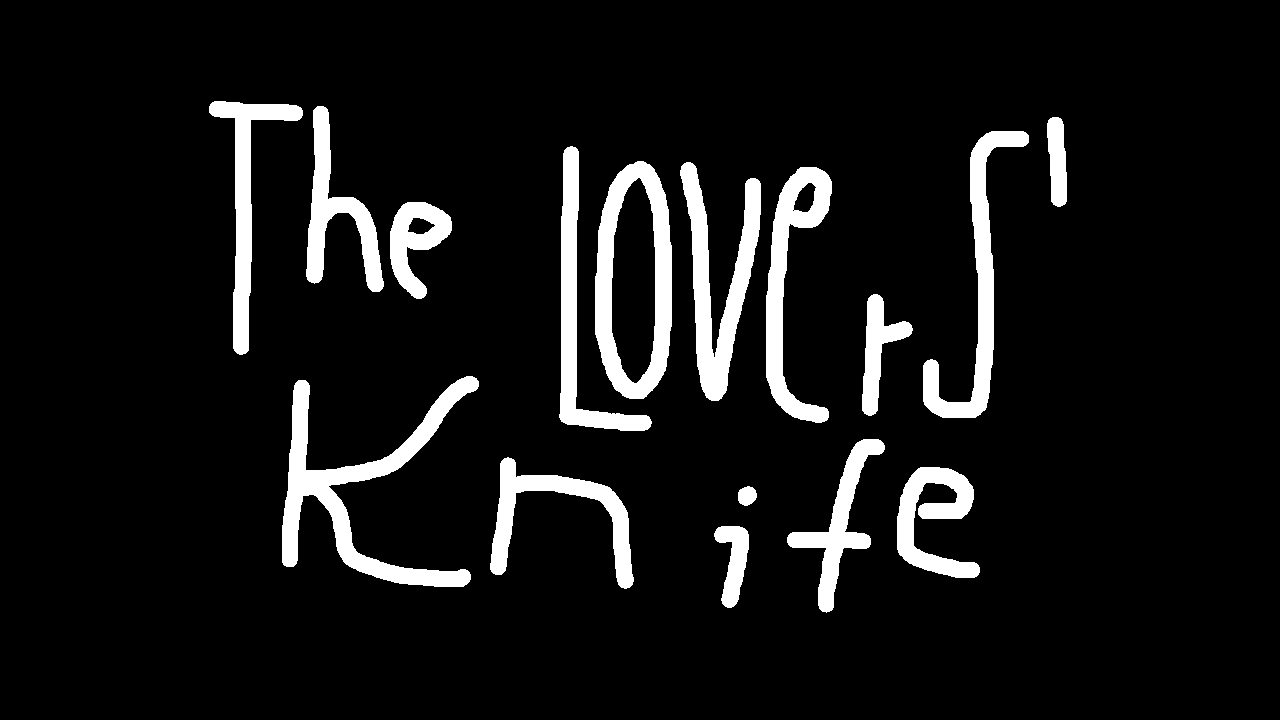 The Lovers'
Knife